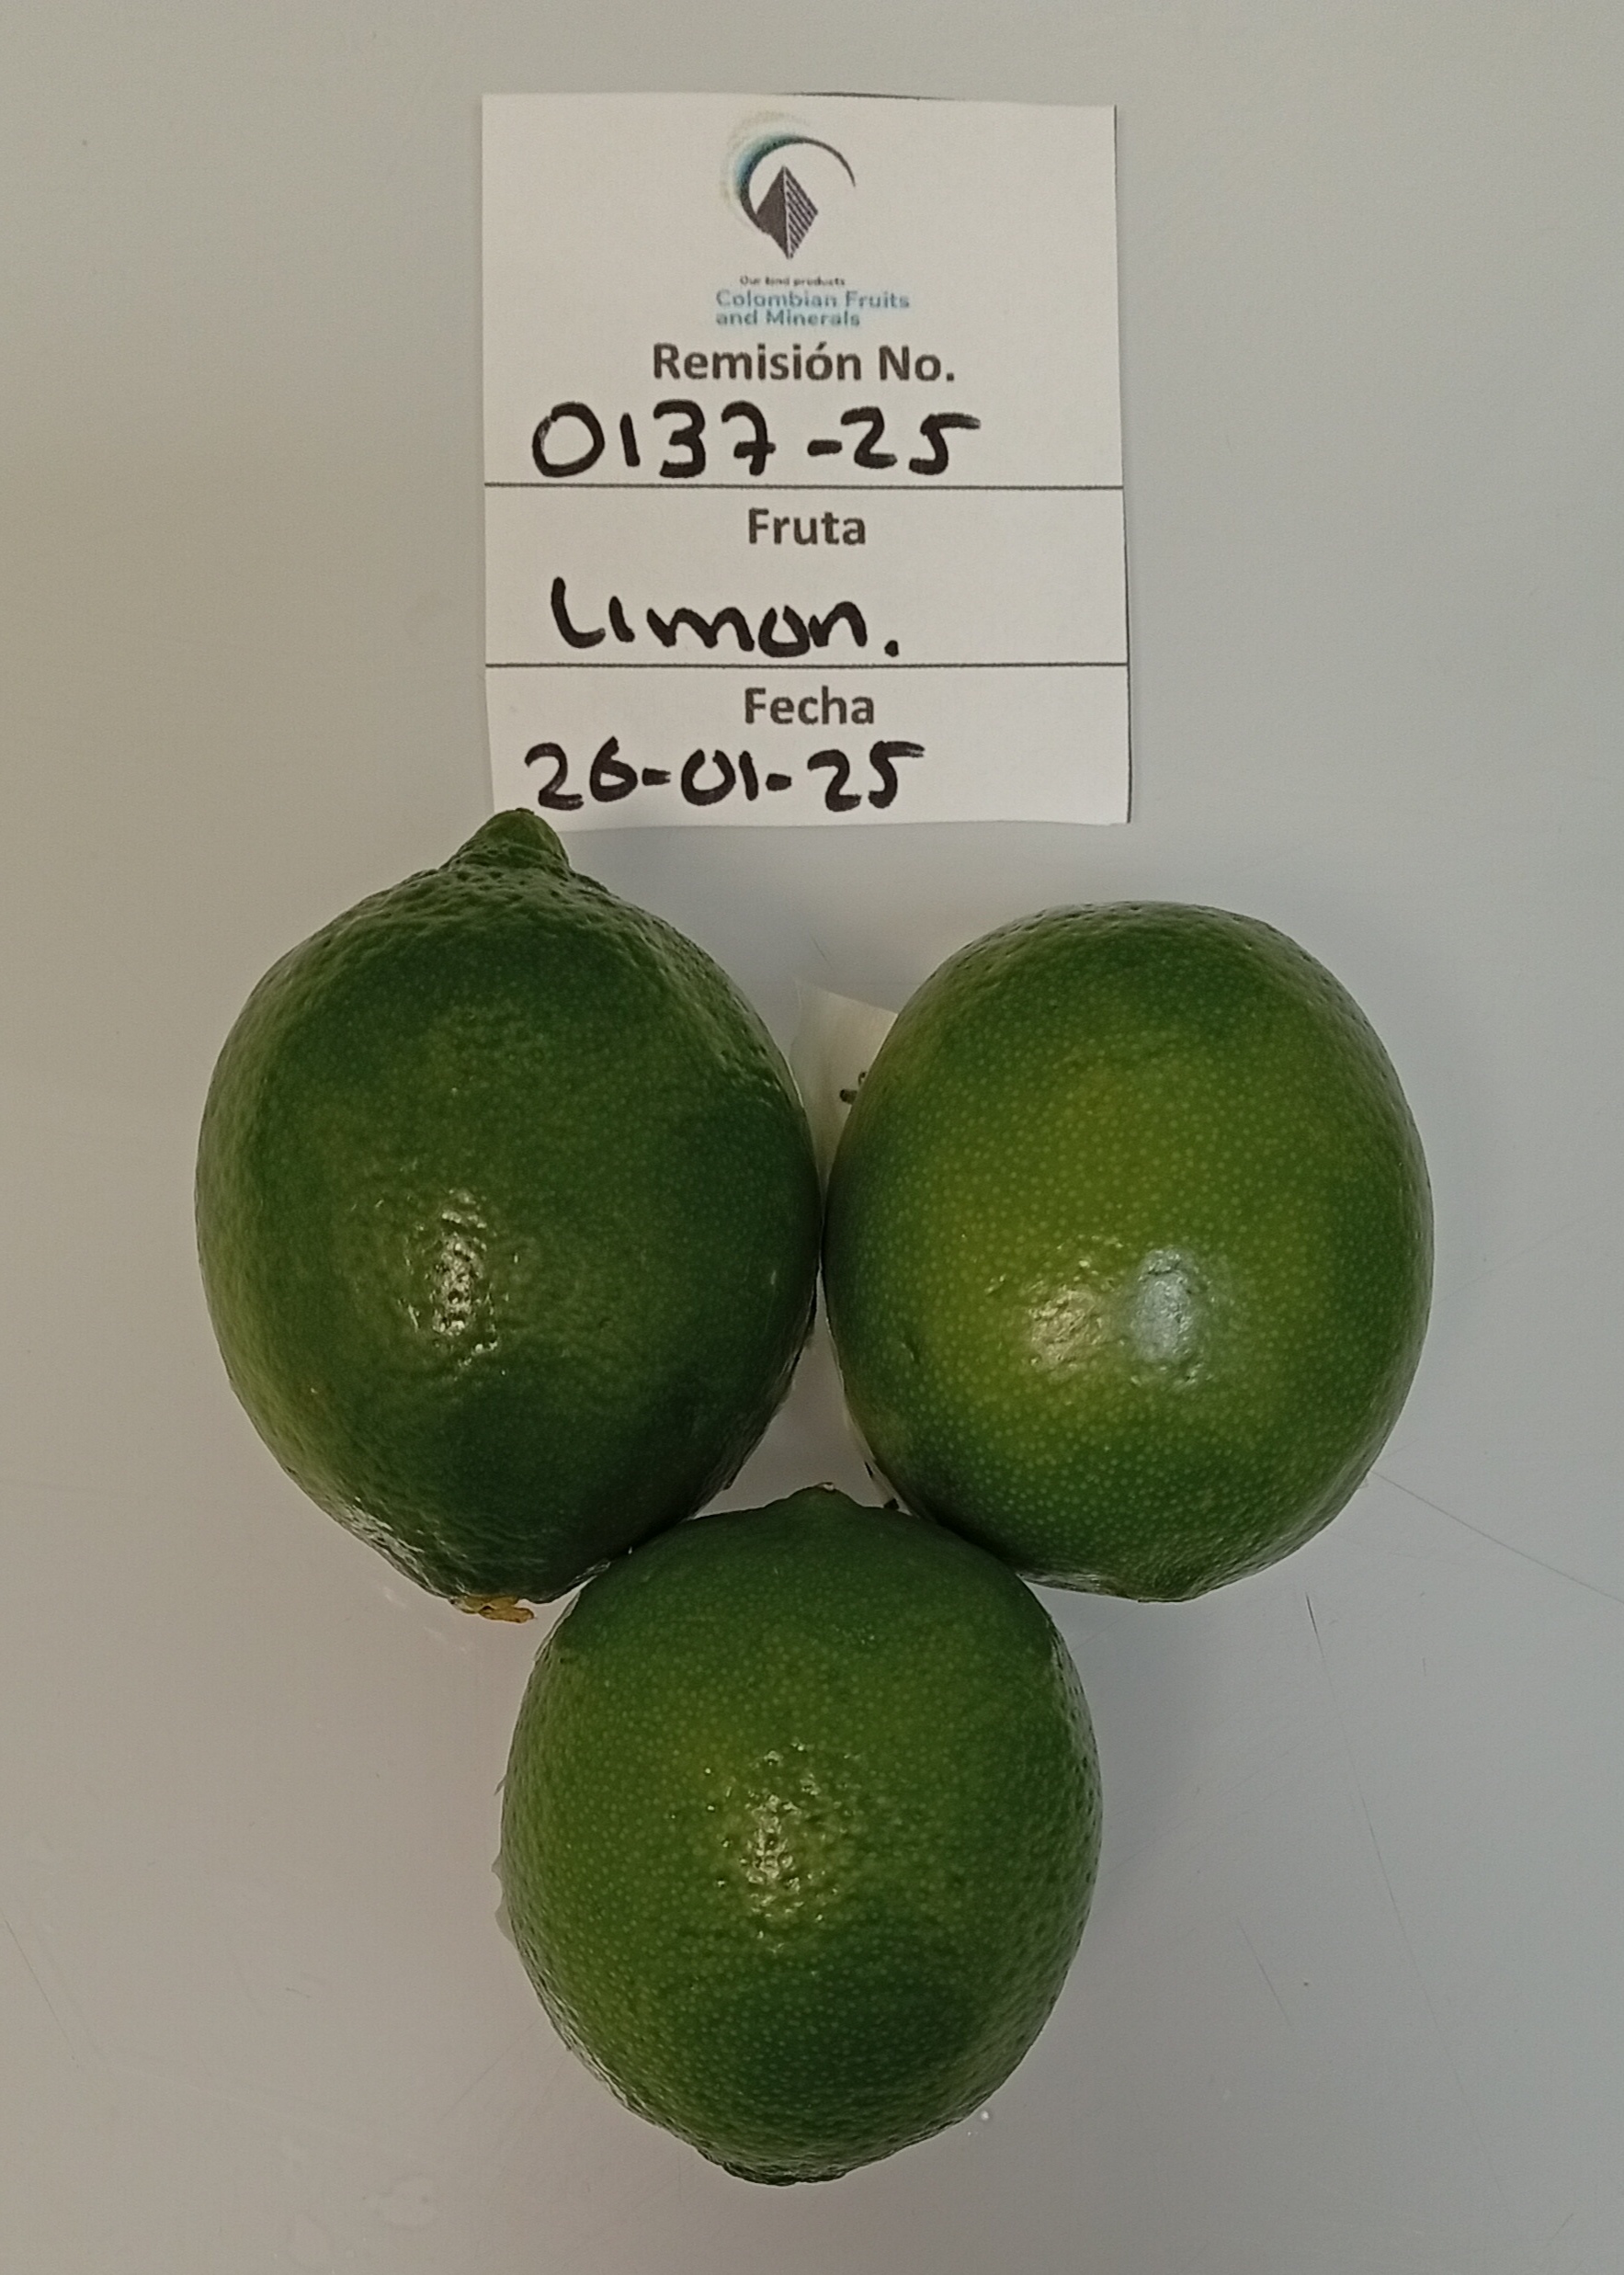 Our kind products
Colombian Fruits
and Minerals
Remisión No.
0137-25
Fruta
Limon.
Fecha
26-01-25